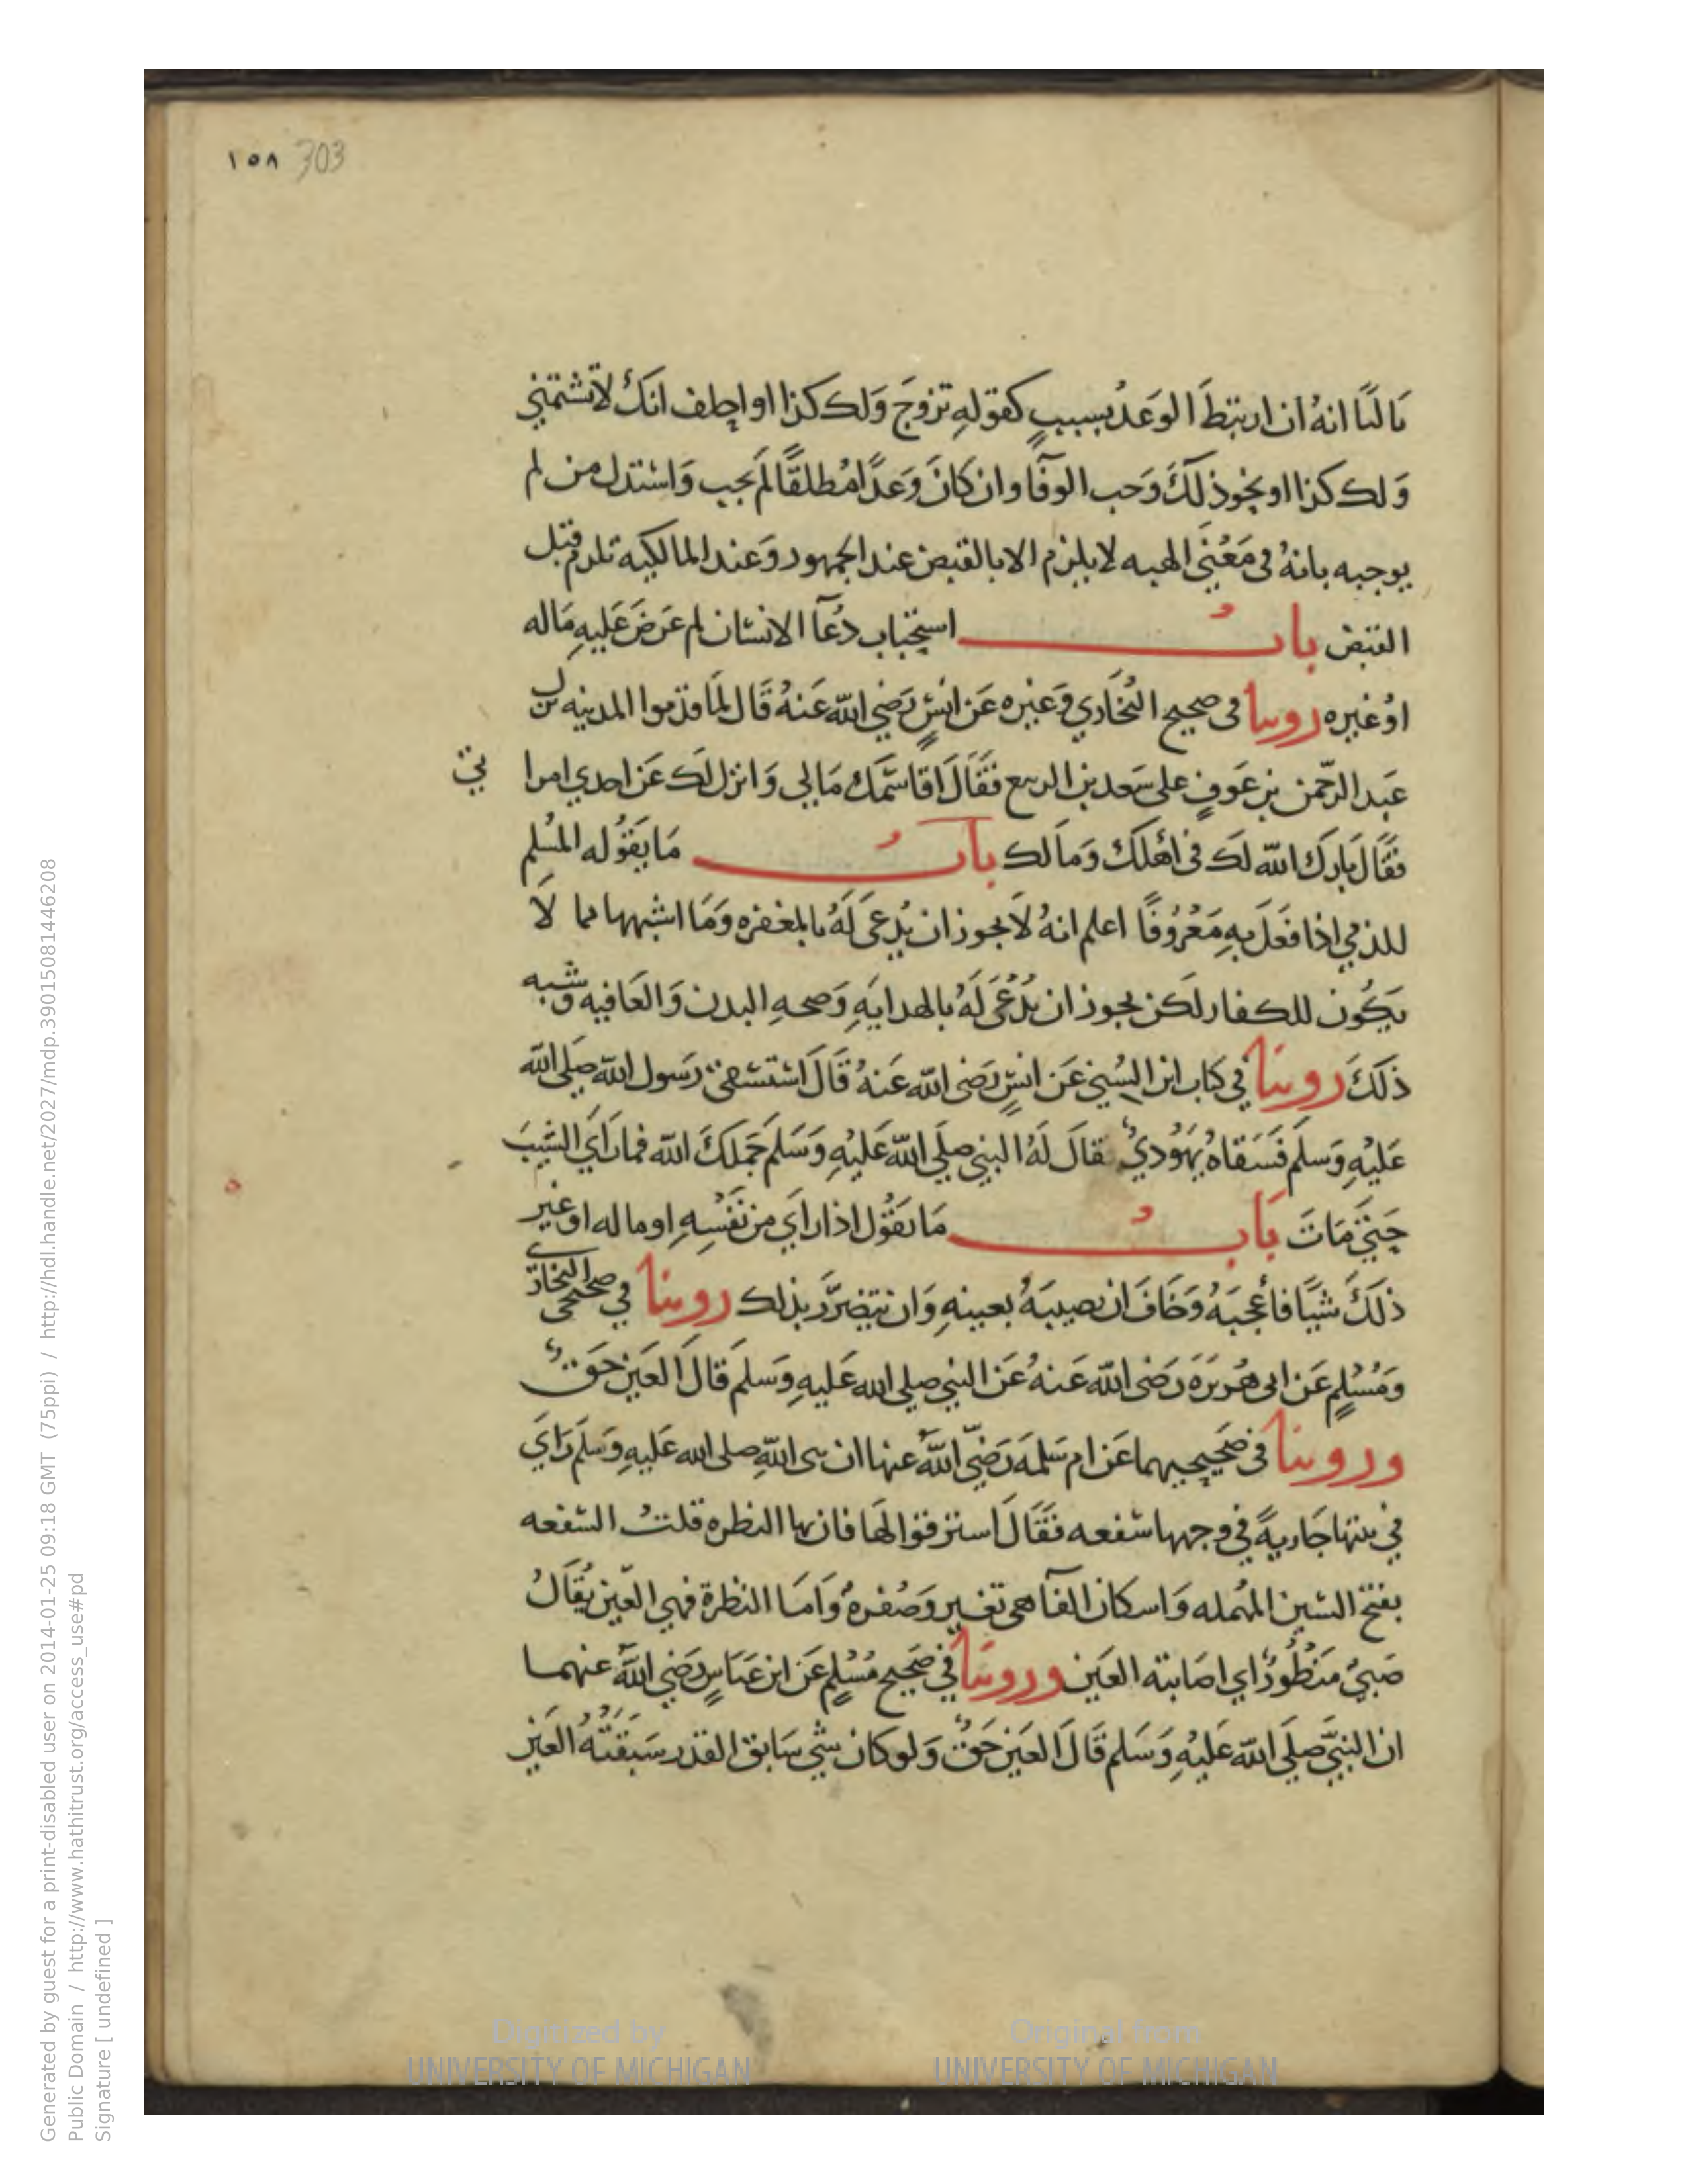 ١٥٨ 303
مَالنًا انهُ ان ارتبَطَ الوَعدُ بسببٍ كقولهِ تزوجَ وَلك كذا او احلف انكَ لاتشتمني
وَلك كذا او نحوذلكَ وَجب الوفآ وان كانَ وَعدًا مُطلقًا لم يجب وَاستدل من لم
يوجبه بانهُ في مَعْنَى الهبه لايلزم الا بالقبض عند الجمهور وَعند المالكيه تلزم قبل
القبض بابُ استحباب دُعآ الانسان لم عَرضَ عَليهِ مَاله
اوْغيره روينا في صحيح البُخاري وَغيره عَن انسٍ رَضي الله عَنهُ قَال لما قدموا المدينه نزل
عَبد الرّحمن بن عَوفٍ على سَعد بن الربيع فقَالَ اقاسمك مَالي وَانزل لك عَن احدي امرا تيّ
فقَال بَارك الله لك في اهْلكَ وَمالك بابُ مَايقوُله المسُلم
للذمي اذا فعَلَ بهِ مَعْرُوفًا اعلم انهُ لاَيجوز ان يُدعَى لَهُ بالمغفره وَمَا اشبهها مما لاَ
يَكُون للكفار لكن يجوز ان يُدْعَى لَهُ بالهدايَهِ وَصحهِ البدن وَالعَافيه وشبه
ذلكَ روينا في كتاب ابن السُني عَن انسٍ رَضي الله عَنهُ قَالَ اسْتسْقى رَسول الله صَلى الله
عَليْهِ وَسلم فَسَقاهُ يَهُوديٌ فقالَ لَهُ النبي صلي الله عَليْهِ وَسَلم جَملَكَ الله فمارَاي الشيبَ
حَتيّ مَاتَ بَابُ مَا يقوُل اذا رَاي من نفْسِهِ او ماله او غير
ذلكَ شيًا فأعْجبَهُ وَخَافَ ان يصيبَهُ بعينهِ وَان يتضرَّر بذلك روينا في صحيحي البخاري
وَمُسْلمٍ عَن ابي هُريرَة رَضي الله عَنهُ عَن النبي صلي الله عَليهِ وَسلم قَالَ العَين حَقٌ
وروينا في صَحيحيهما عَن ام سَلمَه رَضيَ اللهُ عنها ان نبي اللهِ صلي الله عَليهِ وَسَلم رَايَ
في بيتها جَاريهً في وجهها سفعه فقَالَ استرقوا لها فان بها النظره قلتُ السفعه
بفتح السّين المهمله وَاسكان الفآ هي تغير وَصُفره وَامَا النظرة فهي العَين يُقَالُ
صَبيٌ مَنظُورٌ اي اصَابته العَين وروينا في صَحيح مُسْلمٍ عَن ابن عَباسٍ رَضي اللهُ عنهما
ان النبيَّ صلَي الله عَليْهِ وَسَلم قَالَ العَين حَقٌ وَلوكان شي سَابق القدر سَبقتْهُ العَين
Generated by guest for a print-disabled user on 2014-01-25 09:18 GMT (75ppi) / http://hdl.handle.net/2027/mdp.39015081446208
Public Domain / http://www.hathitrust.org/access_use#pd
Signature [ undefined ]
Digitized by
UNIVERSITY OF MICHIGAN
Original from
UNIVERSITY OF MICHIGAN